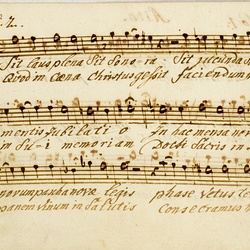 2.
Sit laus plena Sit Sono ra Sit jucunda
Quod in cæna Christus gessit faciendum
mentis Jubilati o In hac mensa no
in su-i memoriam Docti sacris in
norum pascha novæ legis phase vetus
panem vinum in salutis Consecramus